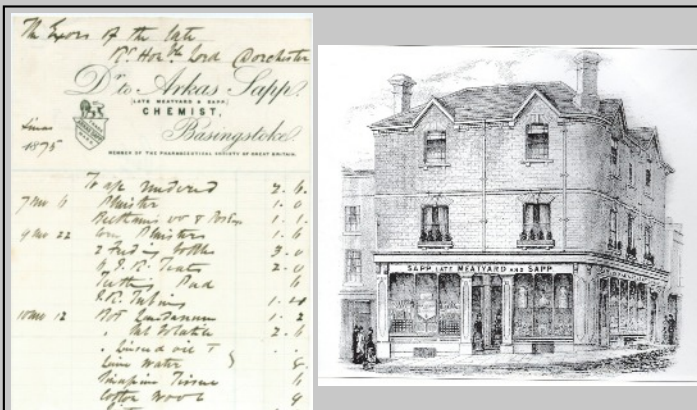 The Exors of the late
Rt. Honble Lord Dorchester
Dr. to Arkas Sapp,
(LATE MEATYARD & SAPP)
CHEMIST,
Basingstoke
MEMBER OF THE PHARMACEUTICAL SOCIETY OF GREAT BRITAIN.
Xmas
1875
To a/c rendered 2. 6
7 mo 6 Plaister 1. 0
1. 1
9 mo 22 Corn Plaisters 1. 6
2 Feeding Bottles 3. 0
Teats 2. 0
Teething Pad 6
I.R. Tubing
10 mo 12 Bot Laudanum 1. 2
Sal Volatile 2. 6
Linseed oil
Lime Water
Tissue 6
Cotton Wool 9
SAPP LATE MEATYARD AND SAPP